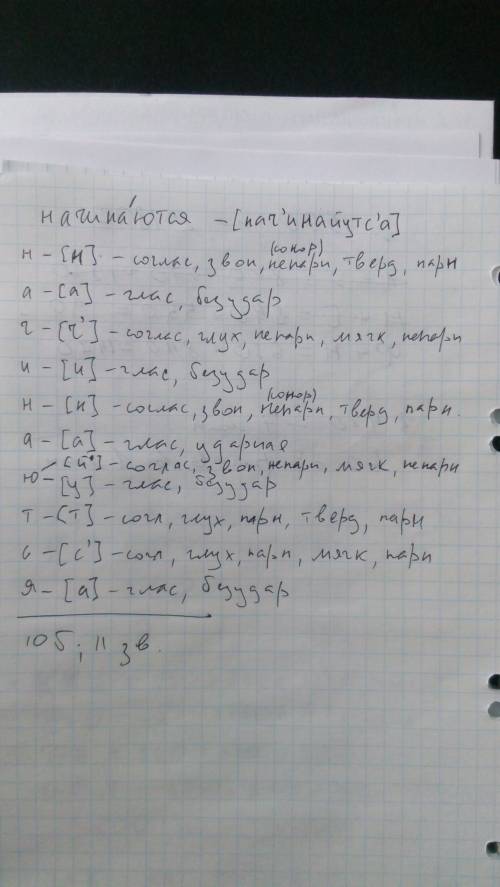 начина́ются – [нач'инайутс'а]
н – [н] – соглас, звон, непарн (сонор), тверд, парн
а – [а] – глас, безудар
ч – [ч'] – соглас, глух, непарн, мягк, непарн
и – [и] – глас, безудар
н – [н] – соглас, звон, непарн (сонор), тверд, парн.
а – [а] – глас, ударная
ю – [й'] – соглас, звон, непарн, мягк, непарн
[у] – глас, безудар
т – [т] – согл, глух, парн, тверд, парн
с – [с'] – согл, глух, парн, мягк, парн
я – [а] – глас, безудар
10 б; 11 зв.